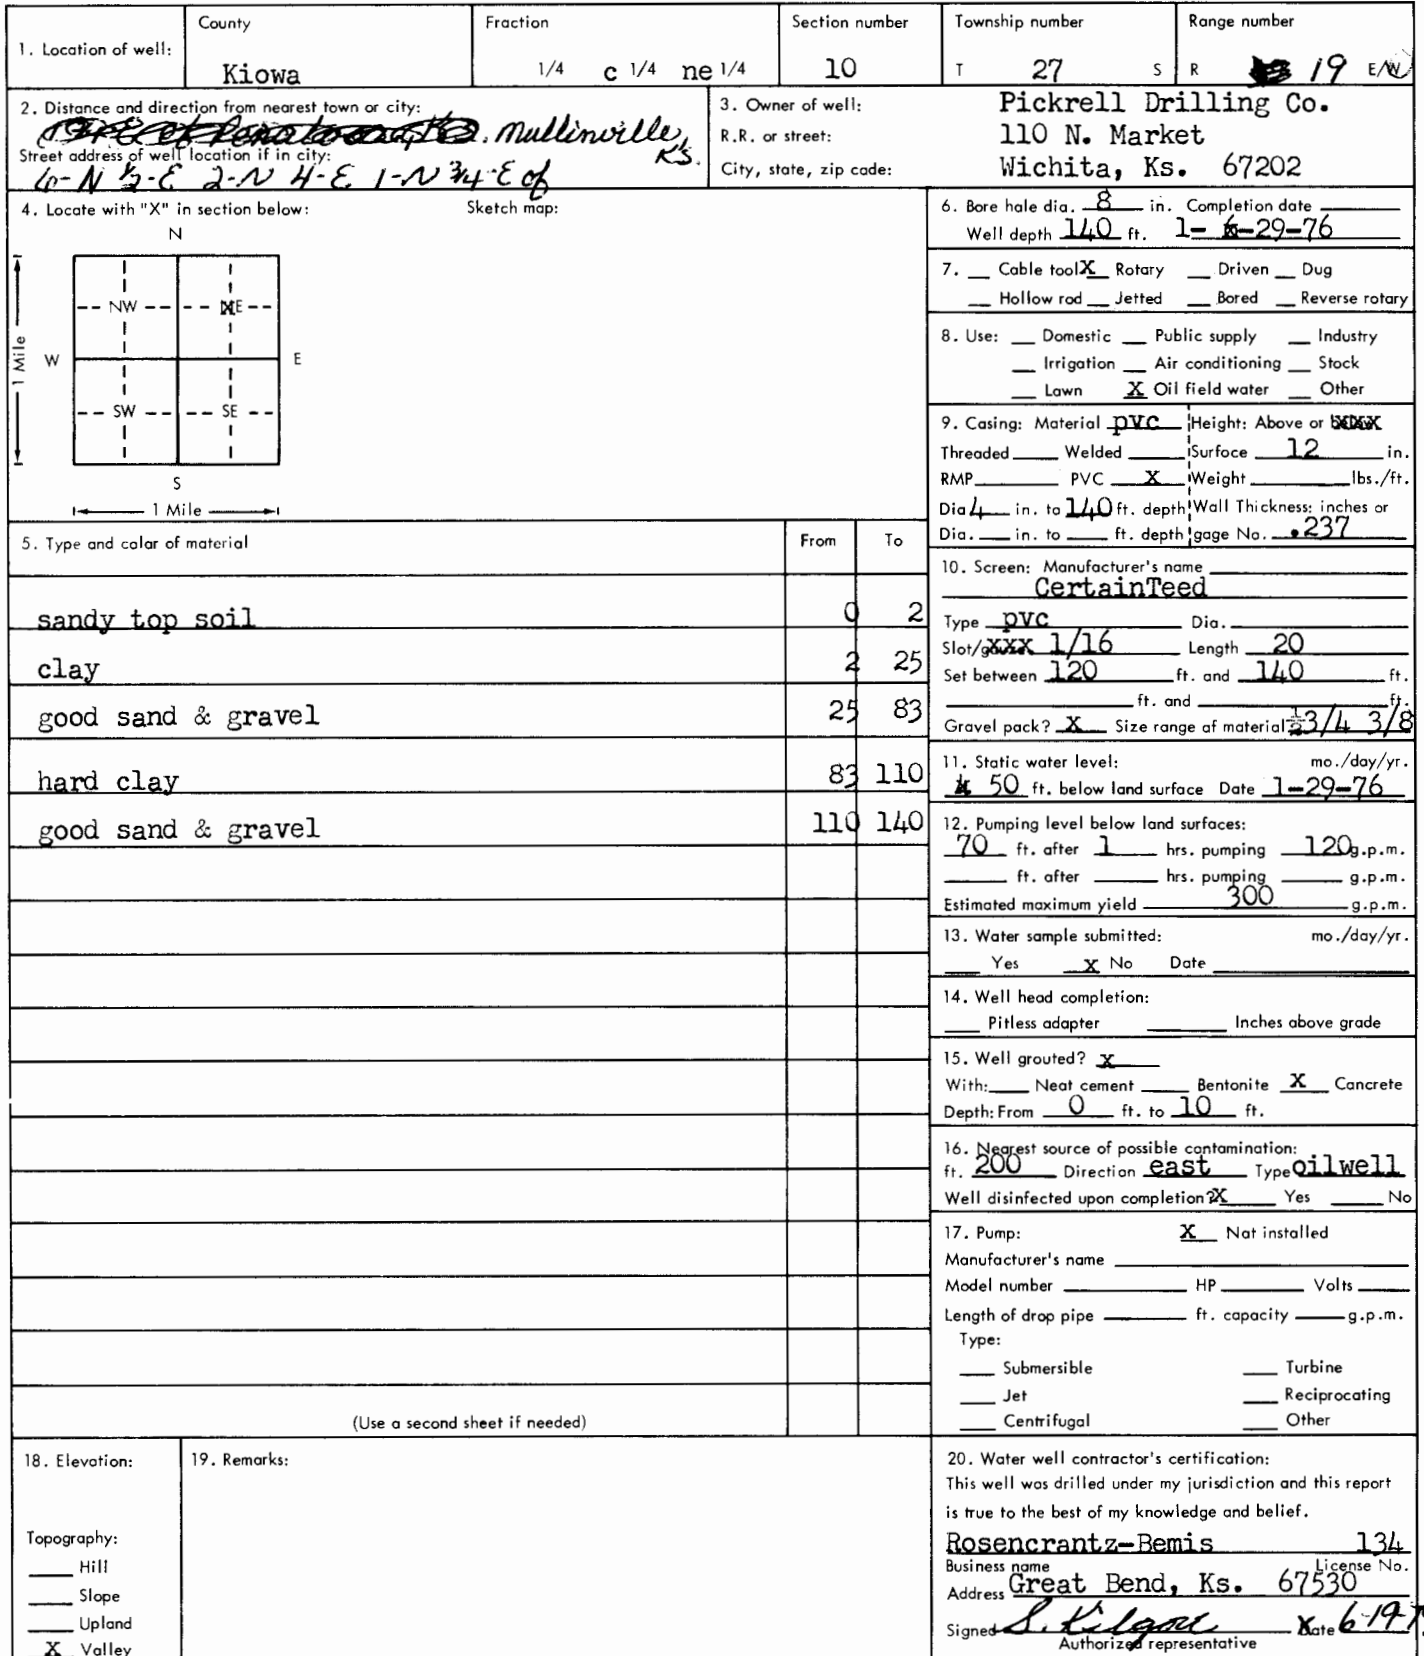 1. Location of well:
County
Kiowa
Fraction
1/4 c 1/4 ne 1/4
Section number
10
Township number
T 27 S
Range number
R 19 E/W
2. Distance and direction from nearest town or city:
Mullinville, Ks.
Street address of well location if in city:
6-N 1/2-E 2-N 4-E 1-N 3/4-E of
3. Owner of well: Pickrell Drilling Co.
R.R. or street: 110 N. Market
City, state, zip code: Wichita, Ks. 67202
4. Locate with "X" in section below:
Sketch map:
N
NW X NE
W E
SW SE
S
1 Mile
1 Mile
5. Type and color of material From To
sandy top soil 0 2
clay 2 25
good sand & gravel 25 83
hard clay 83 110
good sand & gravel 110 140
(Use a second sheet if needed)
6. Bore hole dia. 8 in. Completion date
Well depth 140 ft. 1- -29-76
7. Cable tool X Rotary Driven Dug
Hollow rod Jetted Bored Reverse rotary
8. Use: Domestic Public supply Industry
Irrigation Air conditioning Stock
Lawn X Oil field water Other
9. Casing: Material pvc Height: Above or
Threaded Welded Surface 12 in.
RMP PVC X Weight lbs./ft.
Dia 4 in. to 140 ft. depth Wall Thickness: inches or
Dia. in. to ft. depth gage No. .237
10. Screen: Manufacturer's name
CertainTeed
Type pvc Dia.
Slot/ 1/16 Length 20
Set between 120 ft. and 140 ft.
ft. and ft.
Gravel pack? X Size range of material 1/2 3/4 3/8
11. Static water level: mo./day/yr.
50 ft. below land surface Date 1-29-76
12. Pumping level below land surfaces:
70 ft. after 1 hrs. pumping 120 g.p.m.
ft. after hrs. pumping g.p.m.
Estimated maximum yield 300 g.p.m.
13. Water sample submitted: mo./day/yr.
Yes X No Date
14. Well head completion:
Pitless adapter Inches above grade
15. Well grouted? X
With: Neat cement Bentonite X Concrete
Depth: From 0 ft. to 10 ft.
16. Nearest source of possible contamination:
ft. 200 Direction east Type oilwell
Well disinfected upon completion? X Yes No
17. Pump: X Not installed
Manufacturer's name
Model number HP Volts
Length of drop pipe ft. capacity g.p.m.
Type:
Submersible Turbine
Jet Reciprocating
Centrifugal Other
18. Elevation:
Topography:
Hill
Slope
Upland
X Valley
19. Remarks:
20. Water well contractor's certification:
This well was drilled under my jurisdiction and this report
is true to the best of my knowledge and belief.
Rosencrantz-Bemis 134
Business name License No.
Address Great Bend, Ks. 67530
Signed S. Kilgore Date 6-19-
Authorized representative